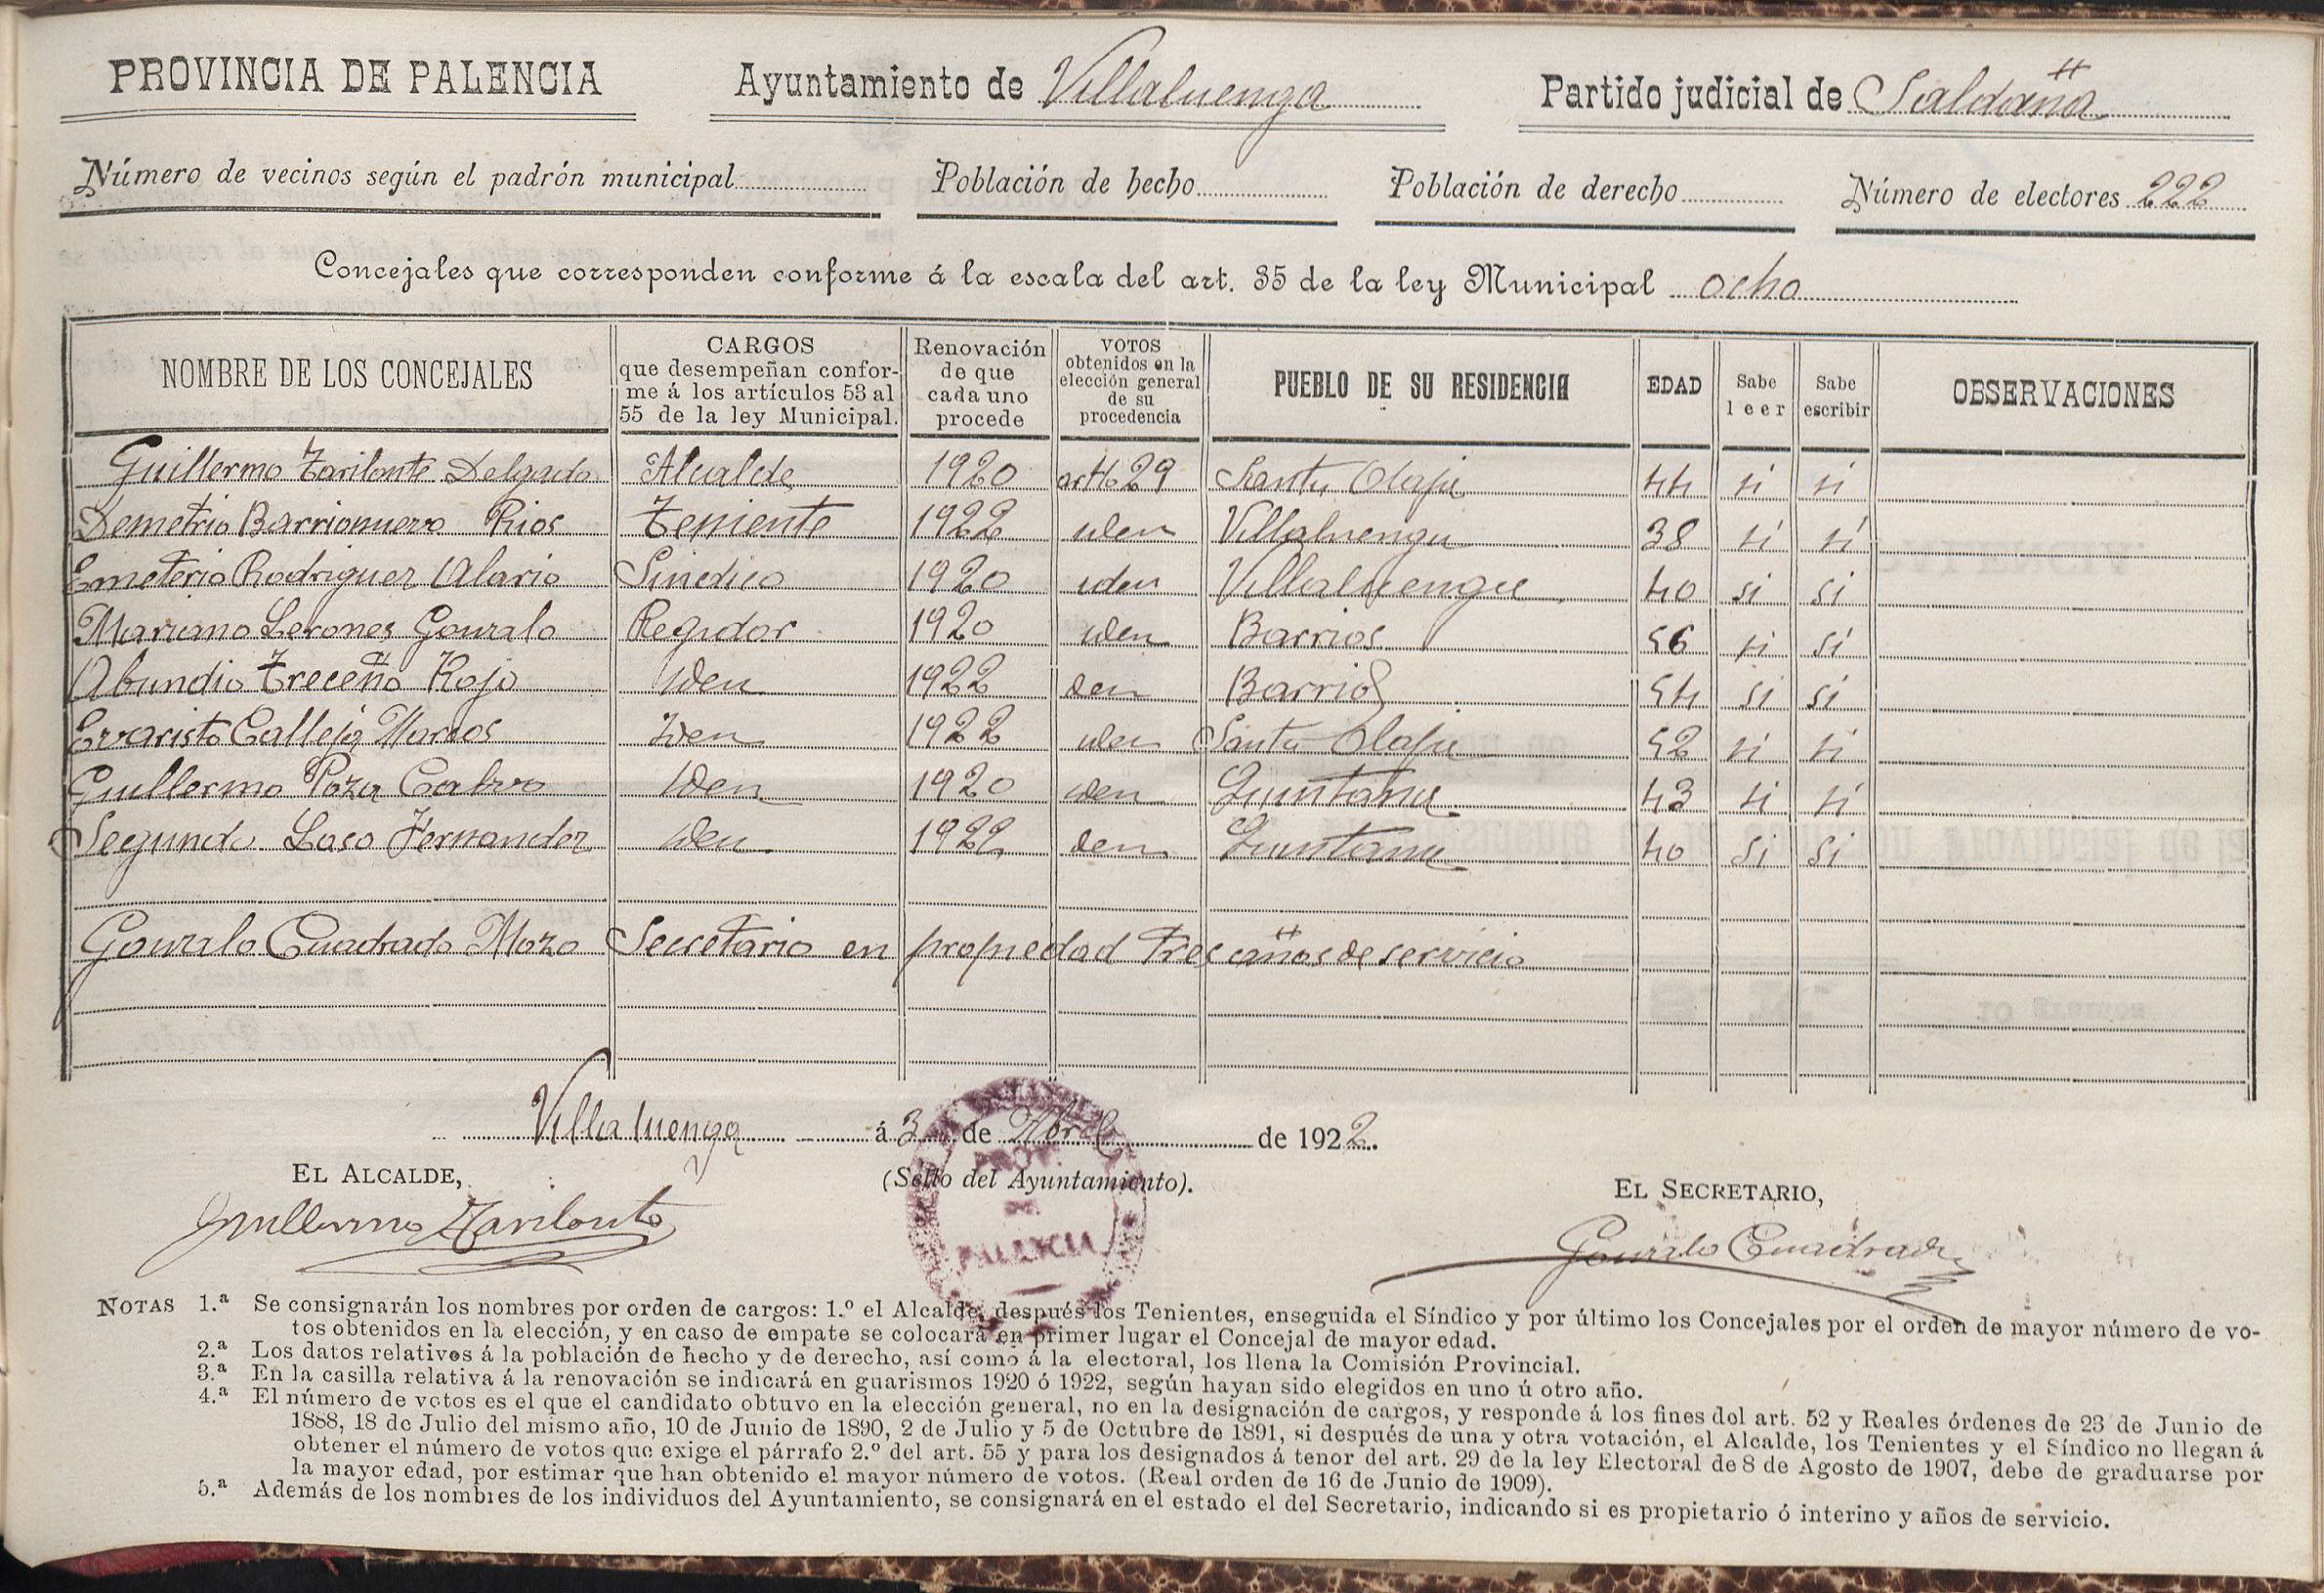 PROVINCIA DE PALENCIA Ayuntamiento de Villaluenga Partido judicial de Saldaña
Número de vecinos según el padrón municipal Población de hecho Población de derecho Número de electores 222
Concejales que corresponden conforme á la escala del art. 35 de la ley Municipal ocho
NOMBRE DE LOS CONCEJALES
CARGOS
que desempeñan confor-
me á los artículos 53 al
55 de la ley Municipal.
Renovación
de que
cada uno
procede
VOTOS
obtenidos en la
elección general
de su
procedencia
PUEBLO DE SU RESIDENCIA
EDAD
Sabe
leer
Sabe
escribir
OBSERVACIONES
Guillermo Tarilonte Delgado Alcalde 1920 artº 29 Santa Olaja 44 si si
Demetrio Barrionuevo Rios Teniente 1922 iden Villaluenga 38 si si
Emeterio Rodriguez Alario Sindico 1920 iden Villaluenga 40 si si
Mariano Lerones Gonzalo Regidor 1920 iden Barrios 56 si si
Abundio Treceño Rojo Iden 1922 iden Barrios 54 si si
Evaristo Calleja Marcos Iden 1922 iden Santa Olaja 52 si si
Guillermo Poza Calvo Iden 1920 iden Quintana 43 si si
Segundo Laso Fernandez Iden 1922 iden Quintana 40 si si
Gonzalo Cuadrado Mozo Secretario en propiedad Tres años de servicio
Villaluenga á 3 de Abril de 1922.
EL ALCALDE, (Sello del Ayuntamiento). EL SECRETARIO,
PROV.
DE
PALENCIA
Guillermo Tarilonte Gonzalo Cuadrado
NOTAS 1.ª Se consignarán los nombres por orden de cargos: 1.º el Alcalde, después los Tenientes, enseguida el Síndico y por último los Concejales por el orden de mayor número de vo-
tos obtenidos en la elección, y en caso de empate se colocará en primer lugar el Concejal de mayor edad.
2.ª Los datos relativos á la población de hecho y de derecho, así como á la electoral, los llena la Comisión Provincial.
3.ª En la casilla relativa á la renovación se indicará en guarismos 1920 ó 1922, según hayan sido elegidos en uno ú otro año.
4.ª El número de votos es el que el candidato obtuvo en la elección general, no en la designación de cargos, y responde á los fines del art. 52 y Reales órdenes de 23 de Junio de
1888, 18 de Julio del mismo año, 10 de Junio de 1890, 2 de Julio y 5 de Octubre de 1891, si después de una y otra votación, el Alcalde, los Tenientes y el Síndico no llegan á
obtener el número de votos que exige el párrafo 2.º del art. 55 y para los designados á tenor del art. 29 de la ley Electoral de 8 de Agosto de 1907, debe de graduarse por
la mayor edad, por estimar que han obtenido el mayor número de votos. (Real orden de 16 de Junio de 1909).
5.ª Además de los nombres de los individuos del Ayuntamiento, se consignará en el estado el del Secretario, indicando si es propietario ó interino y años de servicio.